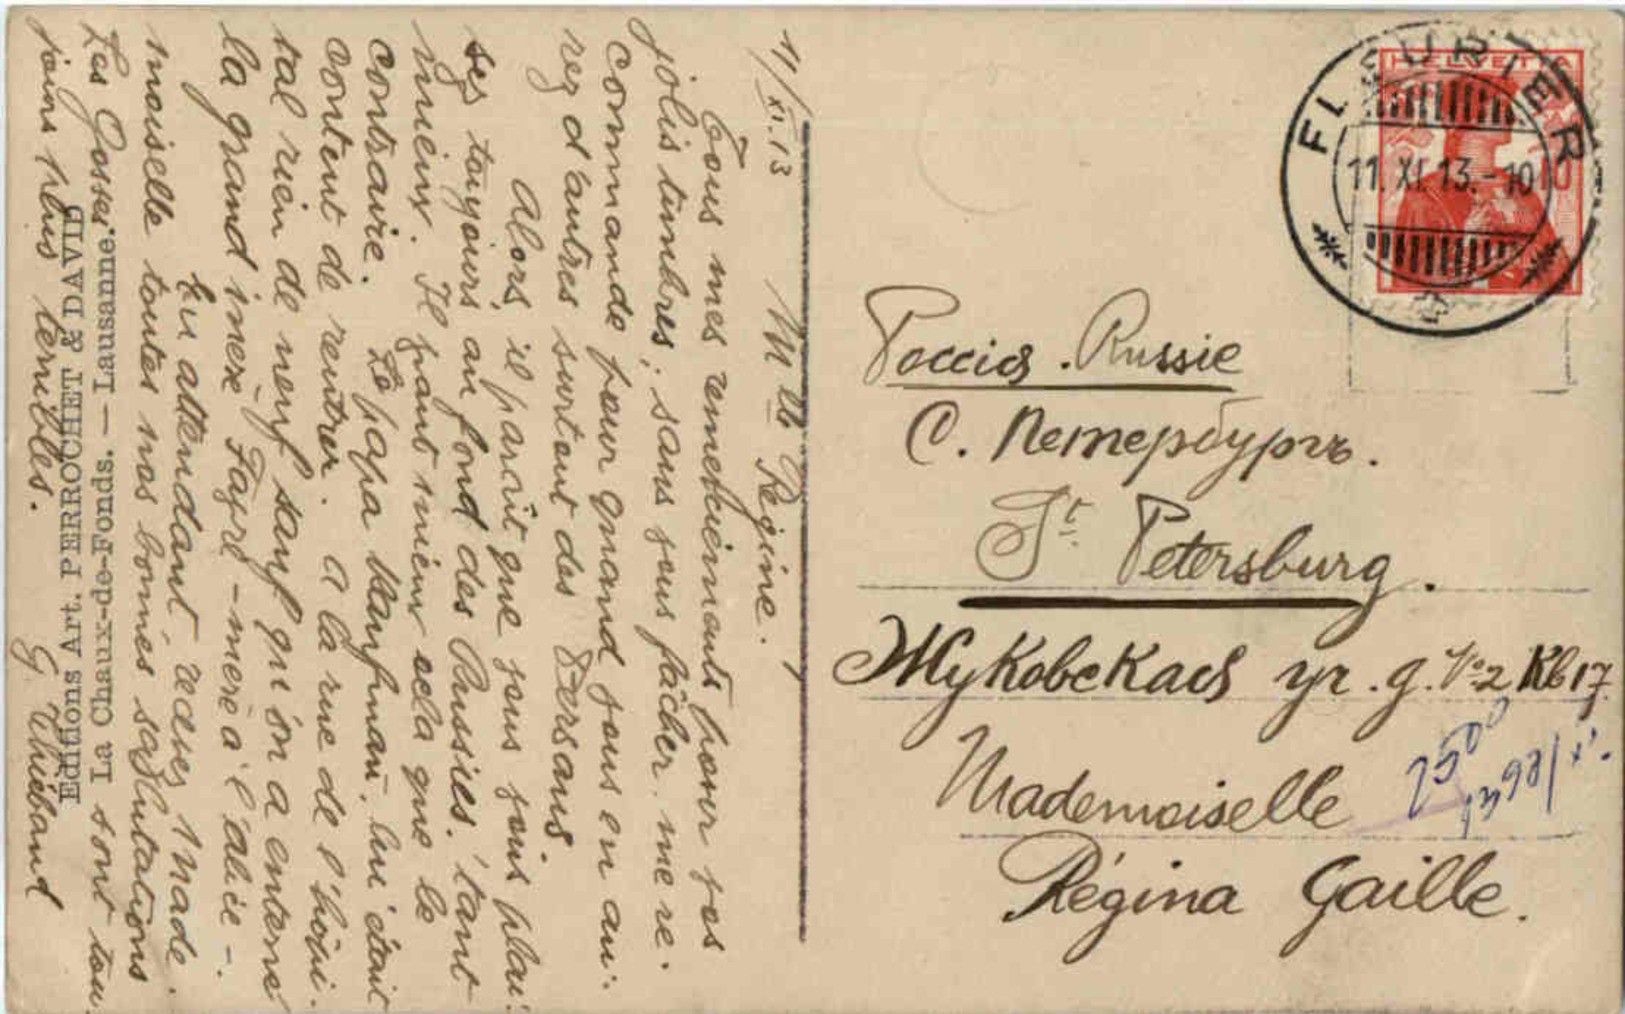 11/XI.13
Mlle Régine.
Tous mes remerciements pour vos
jolis timbres; sans vous fâcher, me re-
commande pour quand vous en au-
rez d'autres surtout des Persans.
Alors, il paraît que vous vous plai-
sez toujours au fond des Russies, tant
mieux. Il vaut mieux cela que le
contraire. Le papa Kaufman, lui était
content de rentrer. A la rue de l'hôpi-
tal rien de neuf sauf qu'on a enterré
la grand'mère Favre - mère à l'alice -.
En attendant, recevez Made-
moiselle toutes nos bonnes salutations
Les Gosses sont tou-
jours plus terribles.
G. Thiébaud
Editions Art. PERROCHET & DAVID
La Chaux-de-Fonds. — Lausanne.
HELVETIA
10
FLEURIER
11.XI.13.-10
Россія. Russie
С. Петербургъ.
St. Petersburg.
Жуковская ул. д. No 2 Кв 17
Mademoiselle
Régina Gaille.